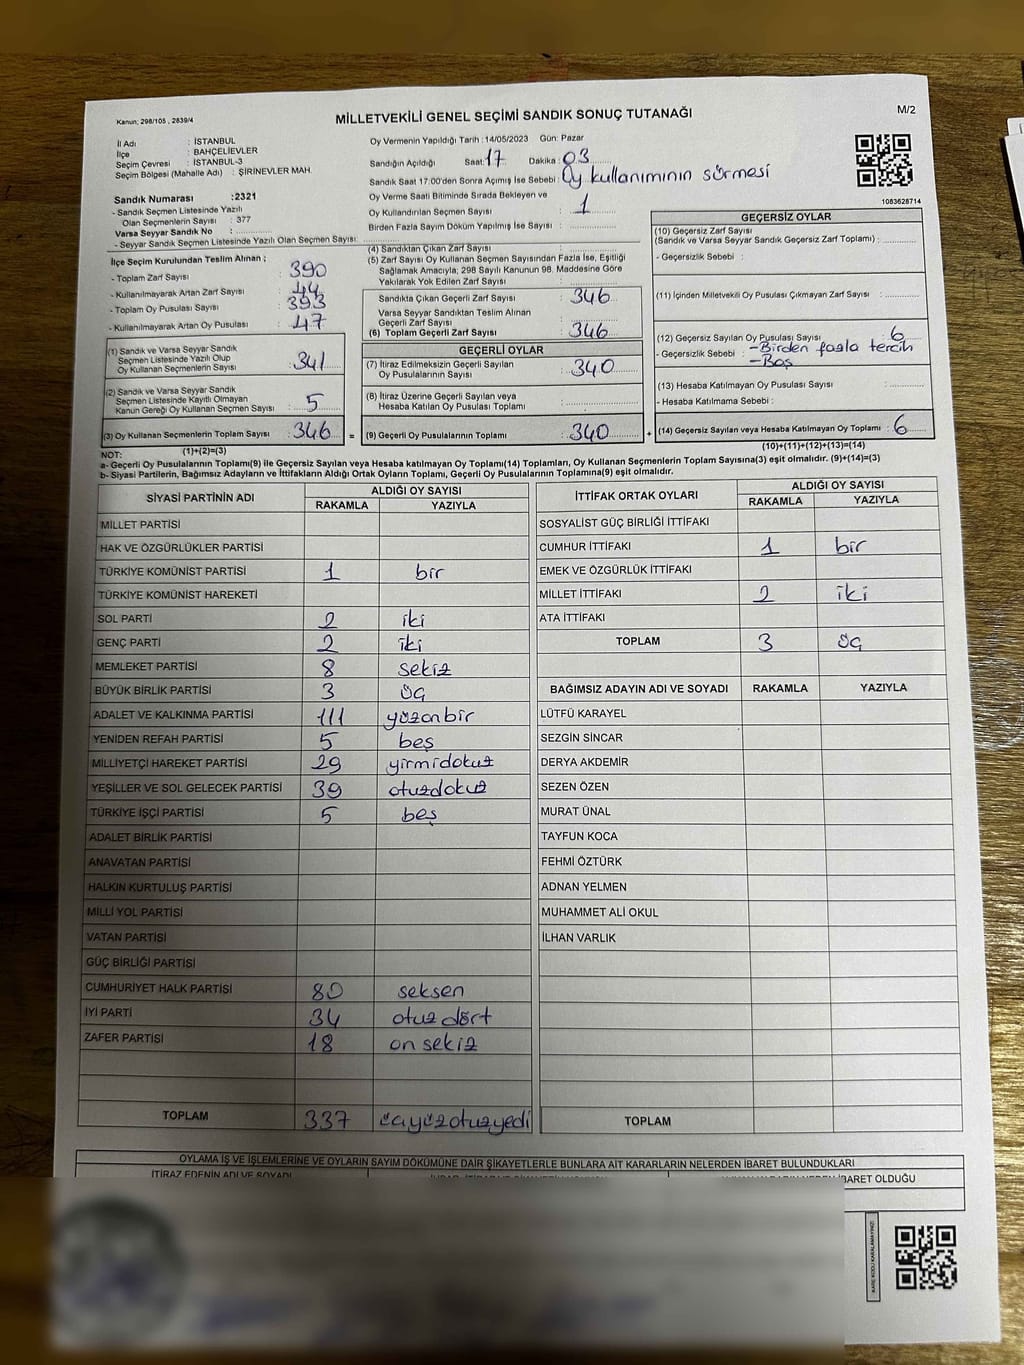 Kanun; 298/105 , 2839/4
MİLLETVEKİLİ GENEL SEÇİMİ SANDIK SONUÇ TUTANAĞI
M/2
İl Adı : İSTANBUL
İlçe : BAHÇELİEVLER
Seçim Çevresi : İSTANBUL-3
Seçim Bölgesi (Mahalle Adı) : ŞİRİNEVLER MAH.
Oy Vermenin Yapıldığı Tarih :14/05/2023 Gün: Pazar
Sandığın Açıldığı Saat: 17 Dakika: 03
Sandık Saat 17:00'den Sonra Açımış İse Sebebi: Oy kullanımının sürmesi
Oy Verme Saati Bitiminde Sırada Bekleyen ve
Oy Kullandırılan Seçmen Sayısı : 1
Birden Fazla Sayım Döküm Yapılmış İse Sayısı :
1083628714
Sandık Numarası :2321
- Sandık Seçmen Listesinde Yazılı
Olan Seçmenlerin Sayısı : 377
Varsa Seyyar Sandık No :
- Seyyar Sandık Seçmen Listesinde Yazılı Olan Seçmen Sayısı:
İlçe Seçim Kurulundan Teslim Alınan ;
- Toplam Zarf Sayısı : 390
- Kullanılmayarak Artan Zarf Sayısı : 44
- Toplam Oy Pusulası Sayısı : 393
- Kullanılmayarak Artan Oy Pusulası : 47
(1) Sandık ve Varsa Seyyar Sandık
Seçmen Listesinde Yazılı Olup
Oy Kullanan Seçmenlerin Sayısı : 341
(2) Sandık ve Varsa Seyyar Sandık
Seçmen Listesinde Kayıtlı Olmayan
Kanun Gereği Oy Kullanan Seçmen Sayısı : 5
(3) Oy Kullanan Seçmenlerin Toplam Sayısı : 346 =
(1)+(2)=(3)
(4) Sandıktan Çıkan Zarf Sayısı :
(5) Zarf Sayısı Oy Kullanan Seçmen Sayısından Fazla İse, Eşitliği
Sağlamak Amacıyla; 298 Sayılı Kanunun 98. Maddesine Göre
Yakılarak Yok Edilen Zarf Sayısı :
Sandıkta Çıkan Geçerli Zarf Sayısı : 346
Varsa Seyyar Sandıktan Teslim Alınan
Geçerli Zarf Sayısı :
(6) Toplam Geçerli Zarf Sayısı : 346
GEÇERLİ OYLAR
(7) İtiraz Edilmeksizin Geçerli Sayılan
Oy Pusulalarının Sayısı : 340
(8) İtiraz Üzerine Geçerli Sayılan veya
Hesaba Katılan Oy Pusulası Toplamı :
(9) Geçerli Oy Pusulalarının Toplamı : 340 +
GEÇERSİZ OYLAR
(10) Geçersiz Zarf Sayısı
(Sandık ve Varsa Seyyar Sandık Geçersiz Zarf Toplamı) :
- Geçersizlik Sebebi :
(11) İçinden Milletvekili Oy Pusulası Çıkmayan Zarf Sayısı :
(12) Geçersiz Sayılan Oy Pusulası Sayısı : 6
- Geçersizlik Sebebi : -Birden fazla tercih
-Boş
(13) Hesaba Katılmayan Oy Pusulası Sayısı :
- Hesaba Katılmama Sebebi :
(14) Geçersiz Sayılan veya Hesaba Katılmayan Oy Toplamı : 6
(10)+(11)+(12)+(13)=(14)
NOT:
a- Geçerli Oy Pusulalarının Toplamı(9) ile Geçersiz Sayılan veya Hesaba katılmayan Oy Toplamı(14) Toplamları, Oy Kullanan Seçmenlerin Toplam Sayısına(3) eşit olmalıdır. (9)+(14)=(3)
b- Siyasi Partilerin, Bağımsız Adayların ve İttifakların Aldığı Ortak Oyların Toplamı, Geçerli Oy Pusulalarının Toplamına(9) eşit olmalıdır.
SİYASİ PARTİNİN ADI ALDIĞI OY SAYISI
RAKAMLA YAZIYLA
MİLLET PARTİSİ
HAK VE ÖZGÜRLÜKLER PARTİSİ
TÜRKİYE KOMÜNİST PARTİSİ 1 bir
TÜRKİYE KOMÜNİST HAREKETİ
SOL PARTİ 2 iki
GENÇ PARTİ 2 iki
MEMLEKET PARTİSİ 8 sekiz
BÜYÜK BİRLİK PARTİSİ 3 üç
ADALET VE KALKINMA PARTİSİ 111 yüzonbir
YENİDEN REFAH PARTİSİ 5 beş
MİLLİYETÇİ HAREKET PARTİSİ 29 yirmidokuz
YEŞİLLER VE SOL GELECEK PARTİSİ 39 otuzdokuz
TÜRKİYE İŞÇİ PARTİSİ 5 beş
ADALET BİRLİK PARTİSİ
ANAVATAN PARTİSİ
HALKIN KURTULUŞ PARTİSİ
MİLLİ YOL PARTİSİ
VATAN PARTİSİ
GÜÇ BİRLİĞİ PARTİSİ
CUMHURİYET HALK PARTİSİ 80 seksen
İYİ PARTİ 34 otuz dört
ZAFER PARTİSİ 18 on sekiz
TOPLAM 337 üçyüzotuzyedi
İTTİFAK ORTAK OYLARI ALDIĞI OY SAYISI
RAKAMLA YAZIYLA
SOSYALİST GÜÇ BİRLİĞİ İTTİFAKI
CUMHUR İTTİFAKI 1 bir
EMEK VE ÖZGÜRLÜK İTTİFAKI
MİLLET İTTİFAKI 2 iki
ATA İTTİFAKI
TOPLAM 3 üç
BAĞIMSIZ ADAYIN ADI VE SOYADI RAKAMLA YAZIYLA
LÜTFÜ KARAYEL
SEZGİN SİNCAR
DERYA AKDEMİR
SEZEN ÖZEN
MURAT ÜNAL
TAYFUN KOCA
FEHMİ ÖZTÜRK
ADNAN YELMEN
MUHAMMET ALİ OKUL
İLHAN VARLIK
TOPLAM
OYLAMA İŞ VE İŞLEMLERİNE VE OYLARIN SAYIM DÖKÜMÜNE DAİR ŞİKAYETLERLE BUNLARA AİT KARARLARIN NELERDEN İBARET BULUNDUKLARI
İTİRAZ EDENİN ADI VE SOYADI
İBARET OLDUĞU